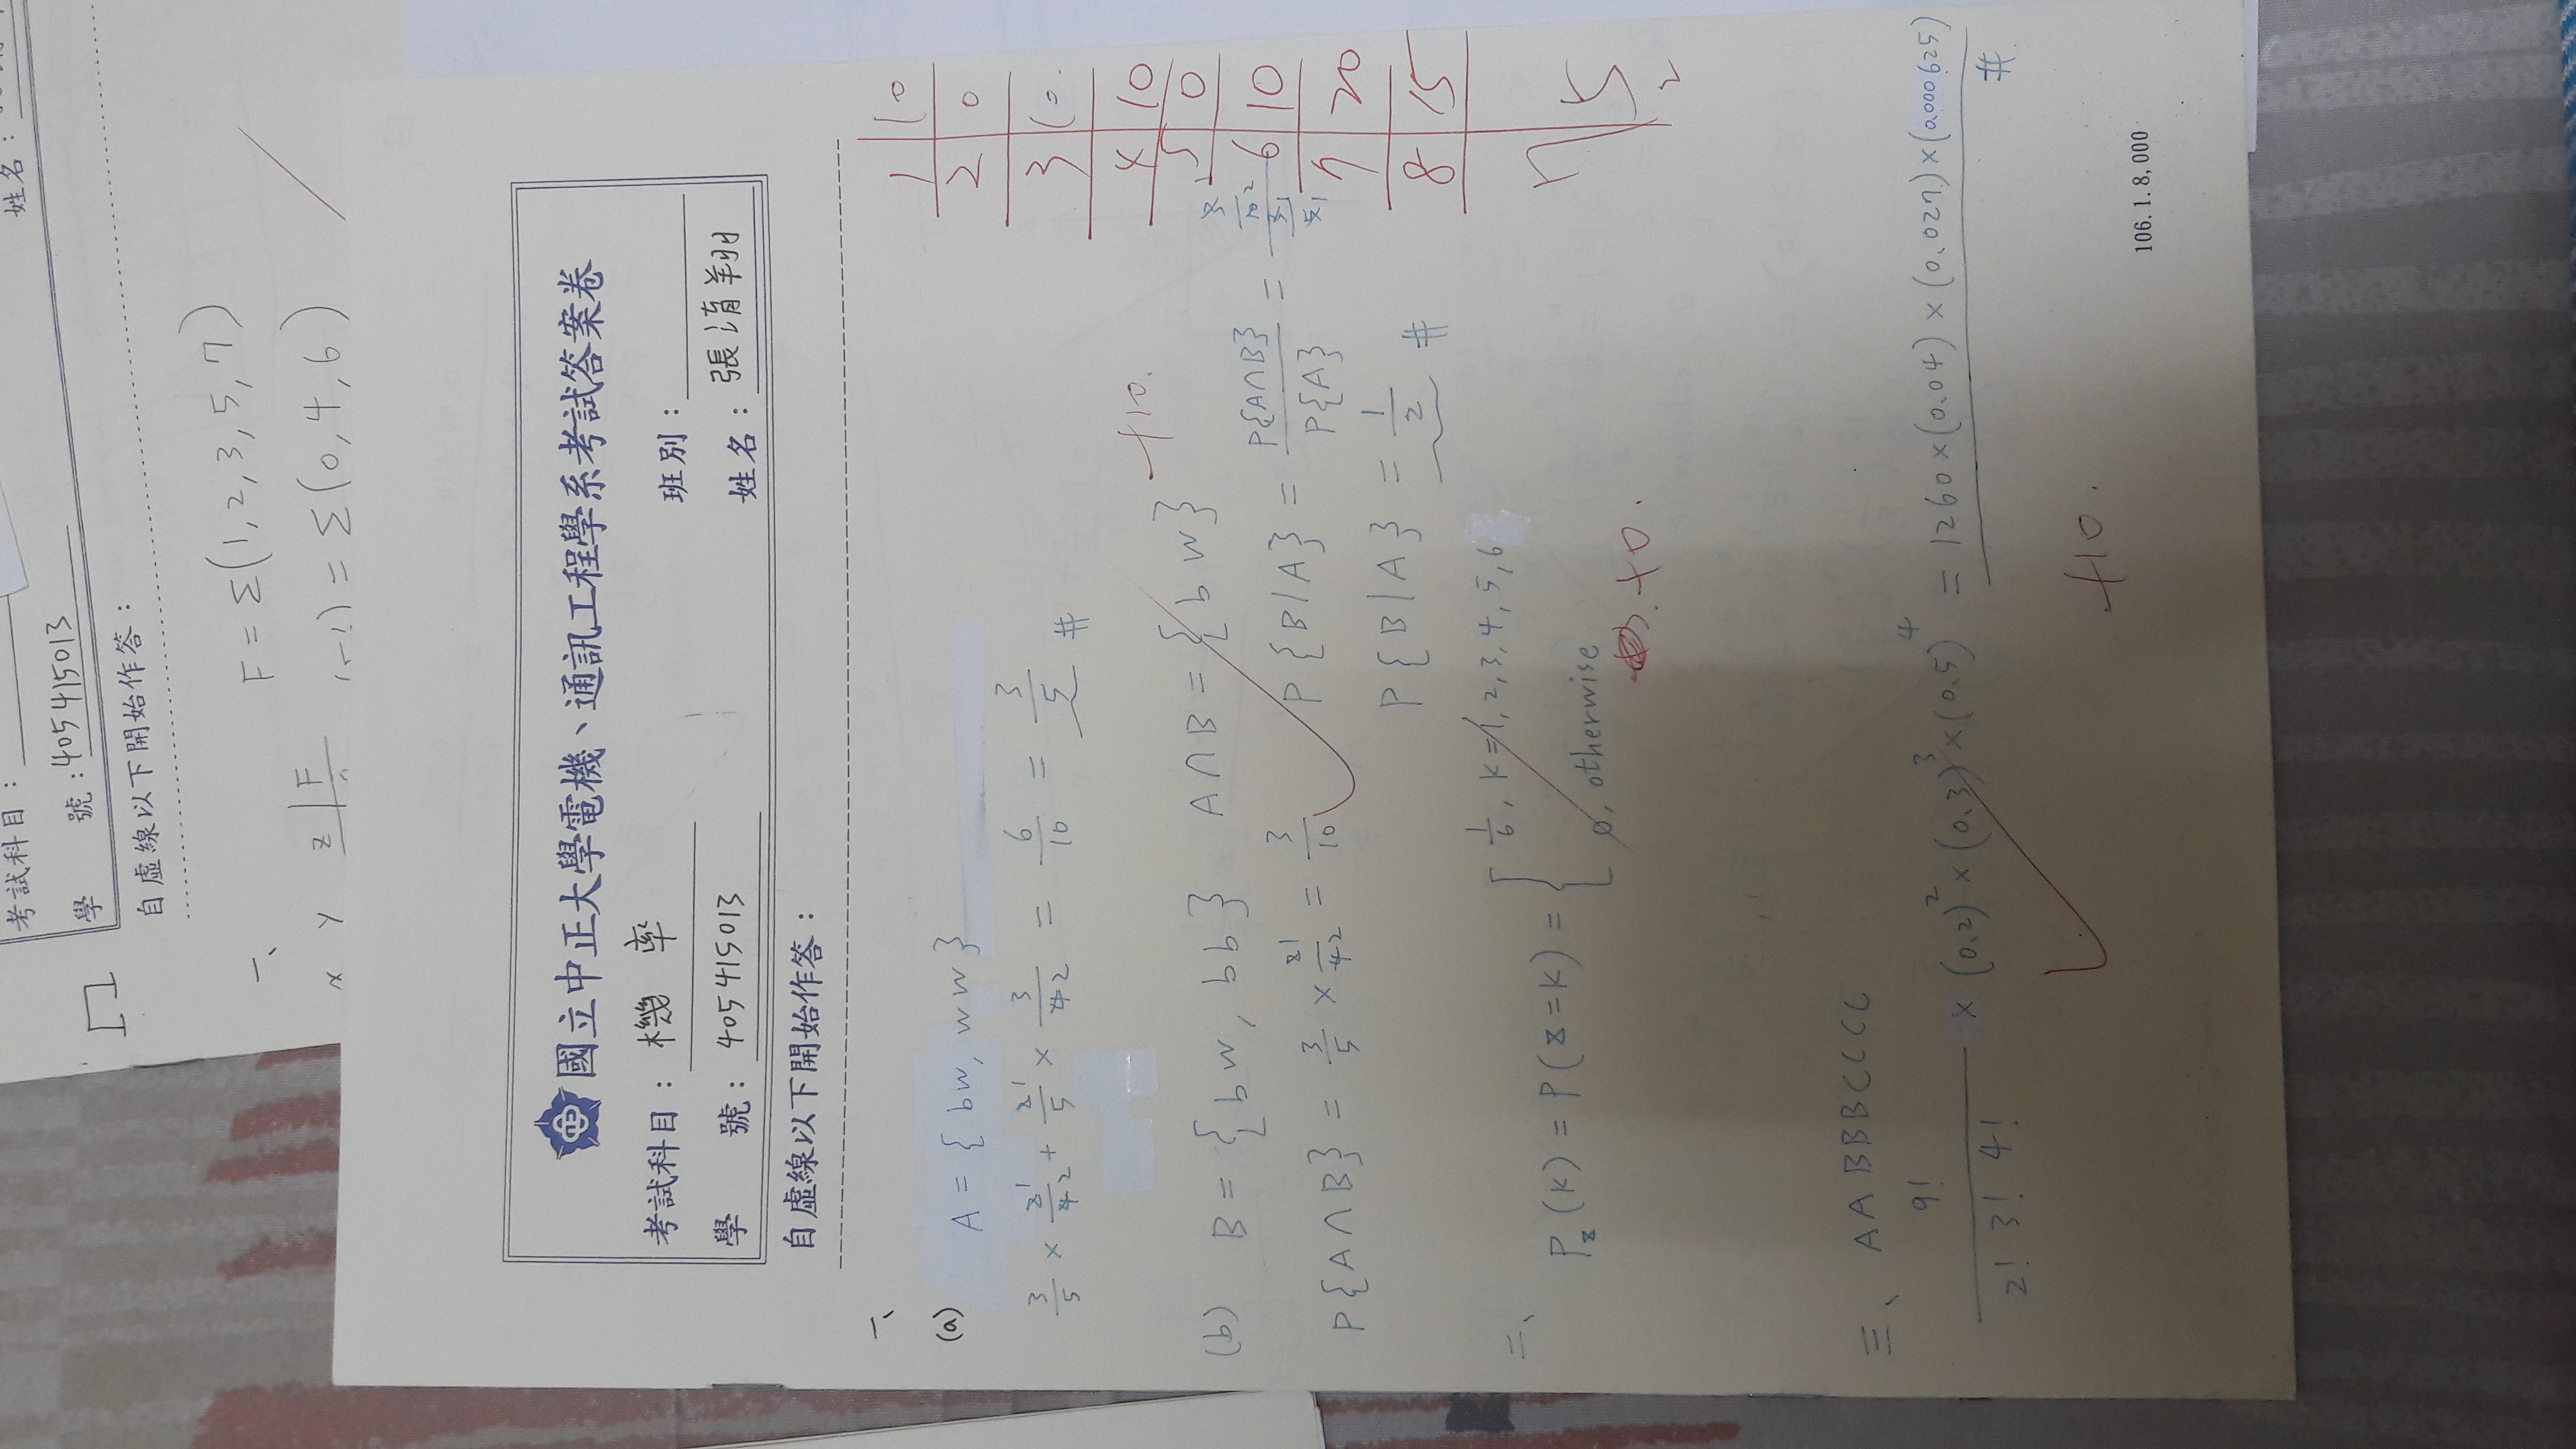 考試科目：
姓名：
學 號：405415013
自虛線以下開始作答：
一、
F = Σ(1, 2, 3, 5, 7)
x y z F
= Σ(0, 4, 6)
國立中正大學電機、通訊工程學系考試答案卷
考試科目：機 率
班別：
學 號：405415013
姓名：張淯翔
自虛線以下開始作答：
一、
(a) A = { bw, ww }
3/5 × 2/4 + 2/5 × 3/4 = 6/10 = 3/5 #
+10.
(b) B = { bw, bb } A∩B = { bw }
P{A∩B} = 3/5 × 2/4 = 3/10
P{B|A} = P{A∩B}/P{A} = (3/10)/(3/5)
P{B|A} = 1/2 #
二、
Pz(K) = P(z=K) = { 1/6, K=1, 2, 3, 4, 5, 6
0, otherwise
+0.
三、 AABBBCCCC
9!/(2! 3! 4!) × (0.2)^2 × (0.3)^3 × (0.5)^4 = 1260 × (0.04) × (0.027) × (0.000625) #
+10.
1 10
2 0
3 10.
4 10
5 0
6 10
7 20
8 15
75
106.1.8,000